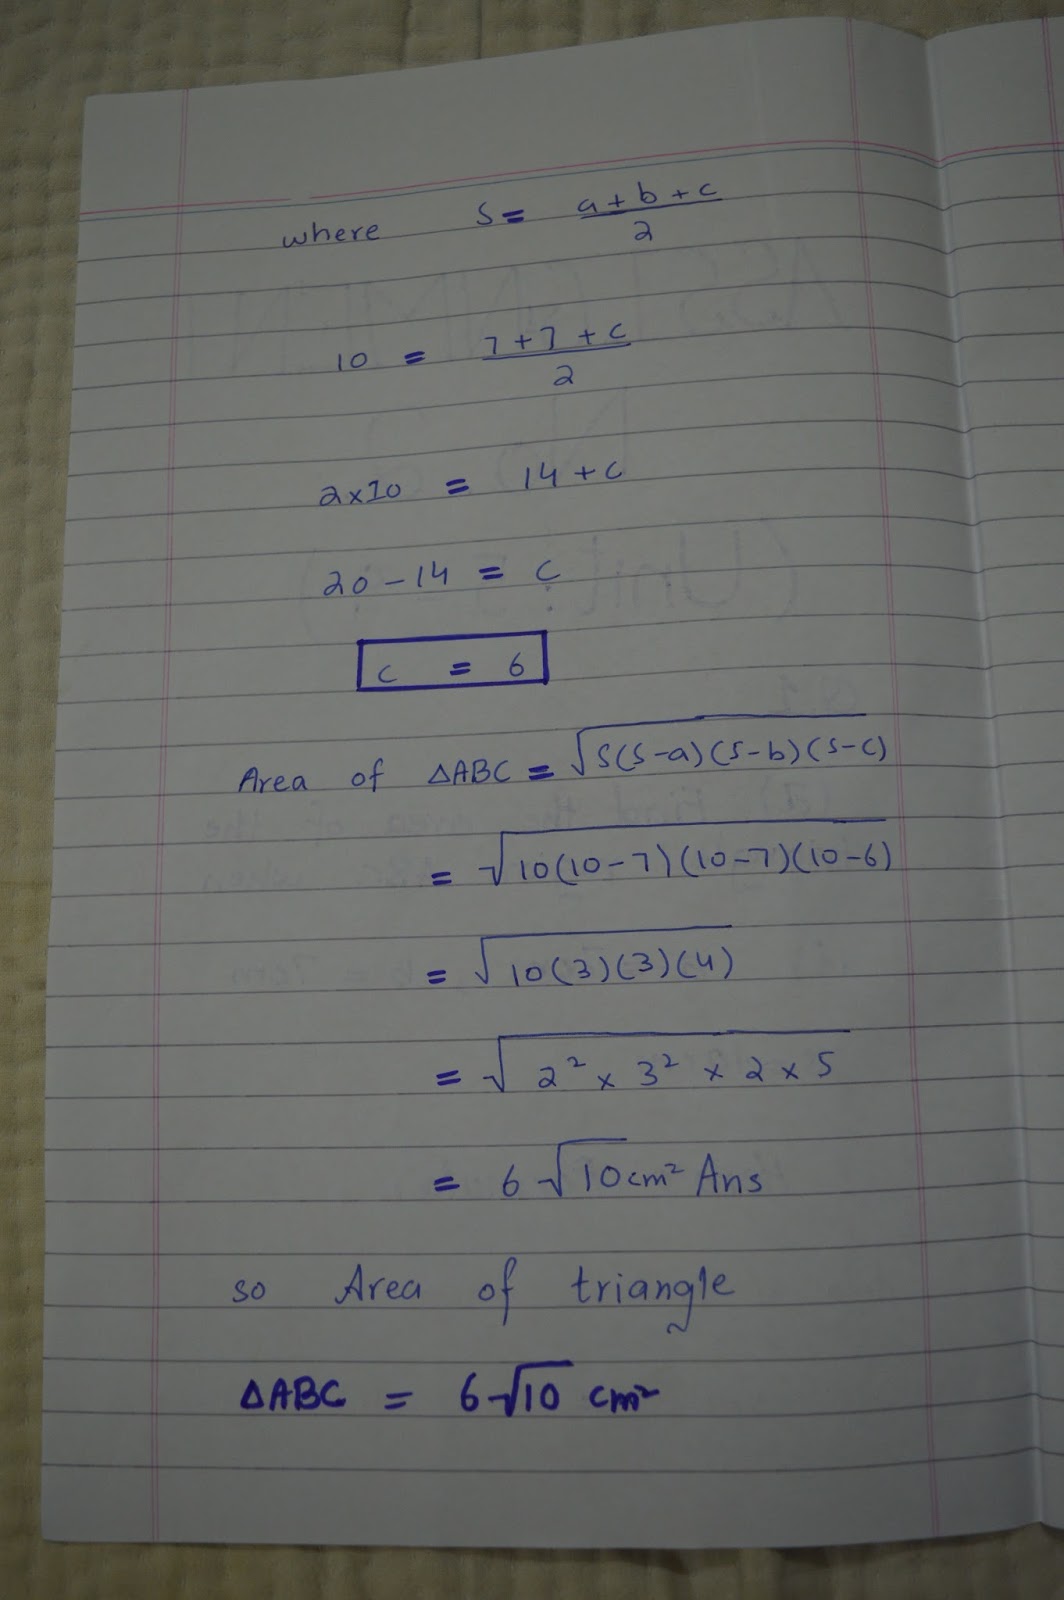 where S = a + b + c / 2
10 = 7 + 7 + c / 2
2x10 = 14 + c
20 - 14 = c
c = 6
Area of △ABC = √S(S-a)(S-b)(S-c)
= √10(10-7)(10-7)(10-6)
= √10(3)(3)(4)
= √2² x 3² x 2 x 5
= 6√10 cm² Ans
so Area of triangle
△ABC = 6√10 cm²